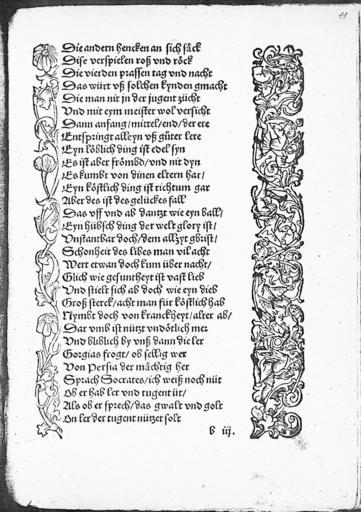 11
Die andern hencken an sich säck
Dise verspielen roß vnd röck
Die vierden prassen tag vnd nacht
Das würt vß solchen kynden gmacht
Die man nit jn der jugent zücht
Vnd mit eym meister wol versicht
Dann anfang/mittel/end/der ere
Entspringt alleyn vß güter lere
Eyn löblich ding ist edel syn
Es ist aber frömbd/vnd nit dyn
Es kumbt von dinen eltern har/
Eyn köstlich ding ist richtum gar
Aber des ist des gelückes fall
Das vff vnd ab dantzt wie eyn ball/
Eyn hübsch ding der welt glory ist/
Vnstantbar doch/dem allzyt gbrist/
Schonheit des libes man vil acht
Wert etwan doch kum über nacht/
Glich wie gesuntheyt ist vast lieb
Vnd stielt sich ab doch wie eyn dieb
Groß sterck/acht man für köstlich hab
Nymbt doch von kranckheyt/alter ab/
Dar vmb ist nützt vndötlich mer
Vnd bliblich by vnß dann die ler
Gorgias frogt/ ob sellig wer
Von Persia der mächtig her
Sprach Socrates/ich weiß noch nüt
Ob er hab ler vnd tugent üt/
Als ob er sprech/das gwalt vnd golt
On ler der tugent nützet solt
b iij.